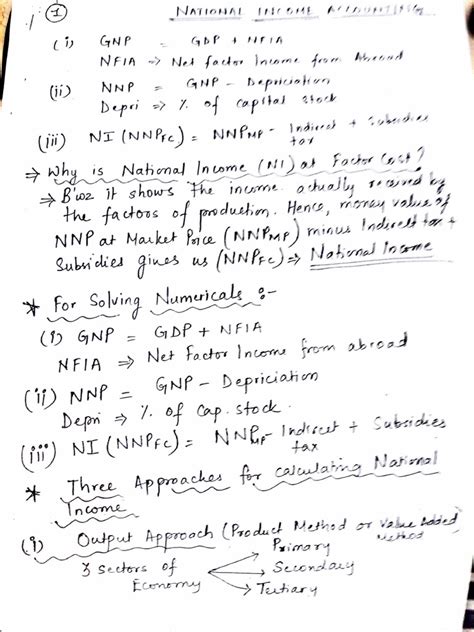 1 NATIONAL INCOME ACCOUNTING
(i) GNP = GDP + NFIA
NFIA => Net factor Income from Abroad
(ii) NNP = GNP - Depriciation
Depri => % of capital stock
(iii) NI (NNPFC) = NNPMP - Indirect tax + Subsidies
=> Why is National Income (NI) at Factor Cost?
=> B'coz it shows the income actually received by
the factors of production. Hence, money value of
NNP at Market Price (NNPMP) minus Indirect tax +
Subsidies gives us (NNPFC) => National Income
* For Solving Numericals :-
(i) GNP = GDP + NFIA
NFIA => Net Factor Income from abroad
(ii) NNP = GNP - Depriciation
Depri => % of Cap. stock.
(iii) NI (NNPFC) = NNPMP - Indirect tax + Subsidies
* Three Approaches for calculating National
Income
(i) Output Approach (Product Method or Value Added Method)
3 Sectors of Economy
Primary
Secondary
Tertiary